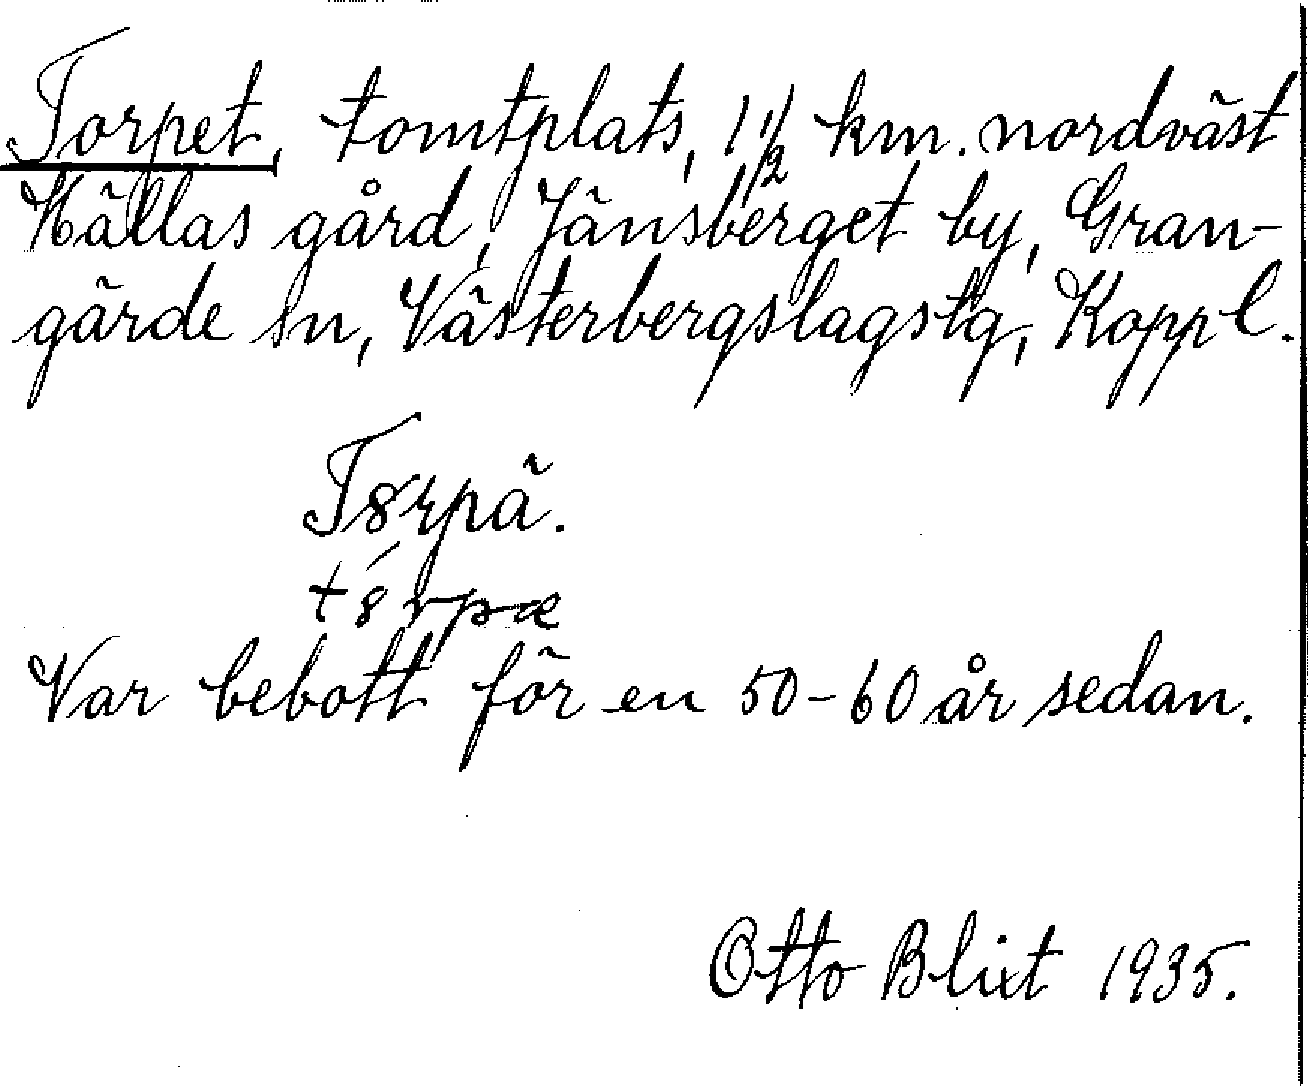 Torpet, tomtplats, 1 1/2 km. nordväst
Hällas gård, Jänsberget by, Gran-
gärde sn, Västerbergslags tg, Kopp l.
T8rpä.
t8́rpæ
Var bebott för en 50-60 år sedan.
Otto Blixt 1935.